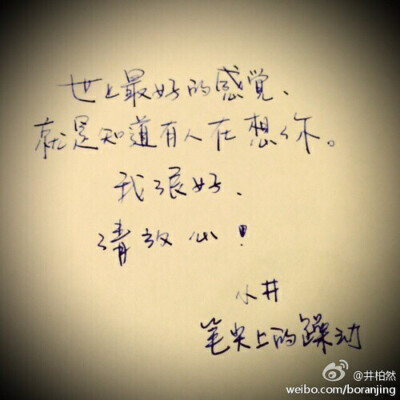 世上最好的感觉、
就是知道有人在想你。
我很好、
请放心!
小井
笔尖上的躁动
@井柏然
weibo.com/boranjing